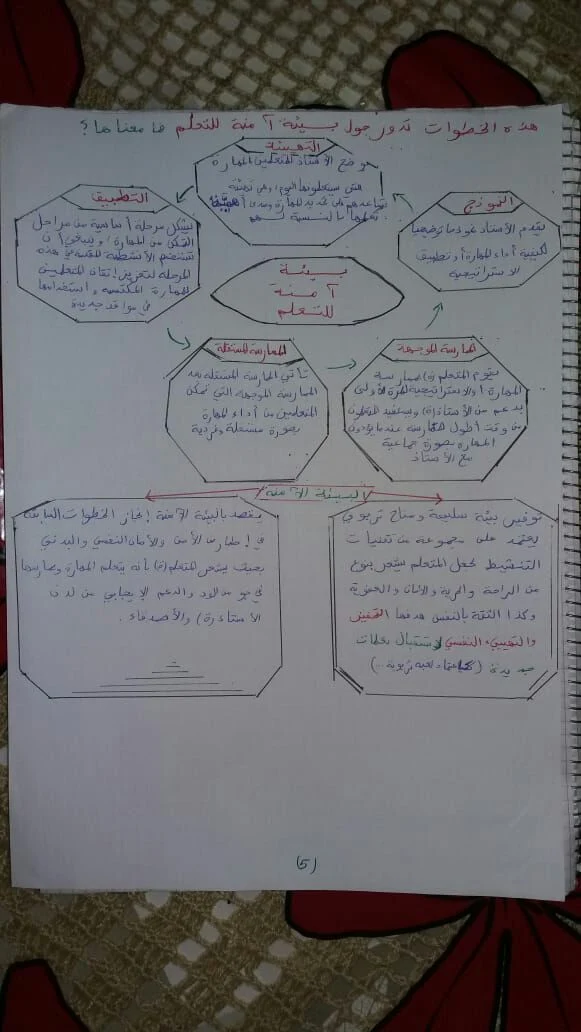 هذه الخطوات تدور حول بيئة آمنة للتعلم ما معناها؟
التهيئة
يوضح الأستاذ للمتعلمين المهارة
التي سيتعلمونها اليوم، وهي تهيئة
تساعدهم على تحديد المهارة ومدى أهمية
تعلمها بالنسبة لهم.
النموذج
يقدم الأستاذ نموذجا توضيحيا
لكيفية أداء المهارة أو تطبيق
الاستراتيجية
الممارسة الموجهة
يقوم المتعلم (ة) بممارسة
المهارة أو الاستراتيجية للمرة الأولى
بدعم من الأستاذ(ة) ويستفيد المتعلمون
من وقت أطول للممارسة عندما يؤدون
المهارة بصورة جماعية
مع الأستاذ
الممارسة المستقلة
تأتي الممارسة المستقلة بعد
الممارسة الموجهة التي تمكن
المتعلمين من أداء المهارة
بصورة مستقلة وفردية
التطبيق
يشكل مرحلة أساسية من مراحل
التمكن من المهارة، وينبغي أن
تستخدم الأنشطة المقدمة في هذه
المرحلة لتعزيز إتقان المتعلمين
المهارة المكتسبة واستخدامها
في مواقف جديدة
بيئة
آمنة
للتعلم
البيئة الآمنة
توفير بيئة سليمة ومناخ تربوي
يعتمد على مجموعة من تقنيات
التنشيط لجعل المتعلم يشعر بنوع
من الراحة والحرية والأمان والحيوية
وكذا الثقة بالنفس هدفها التحفيز
والتهييء النفسي لاستقبال تعلمات
جديدة (تربوية ...)
يقصد بالبيئة الآمنة إنجاز الخطوات السابقة
في إطار من الأمن والأمان النفسي والبدني
بحيث يشعر المتعلم(ة) بأنه يتعلم المهارة ويمارسها
في جو من الود والدعم الإيجابي من لدن
الأستاذ(ة) والأصدقاء.
(5)